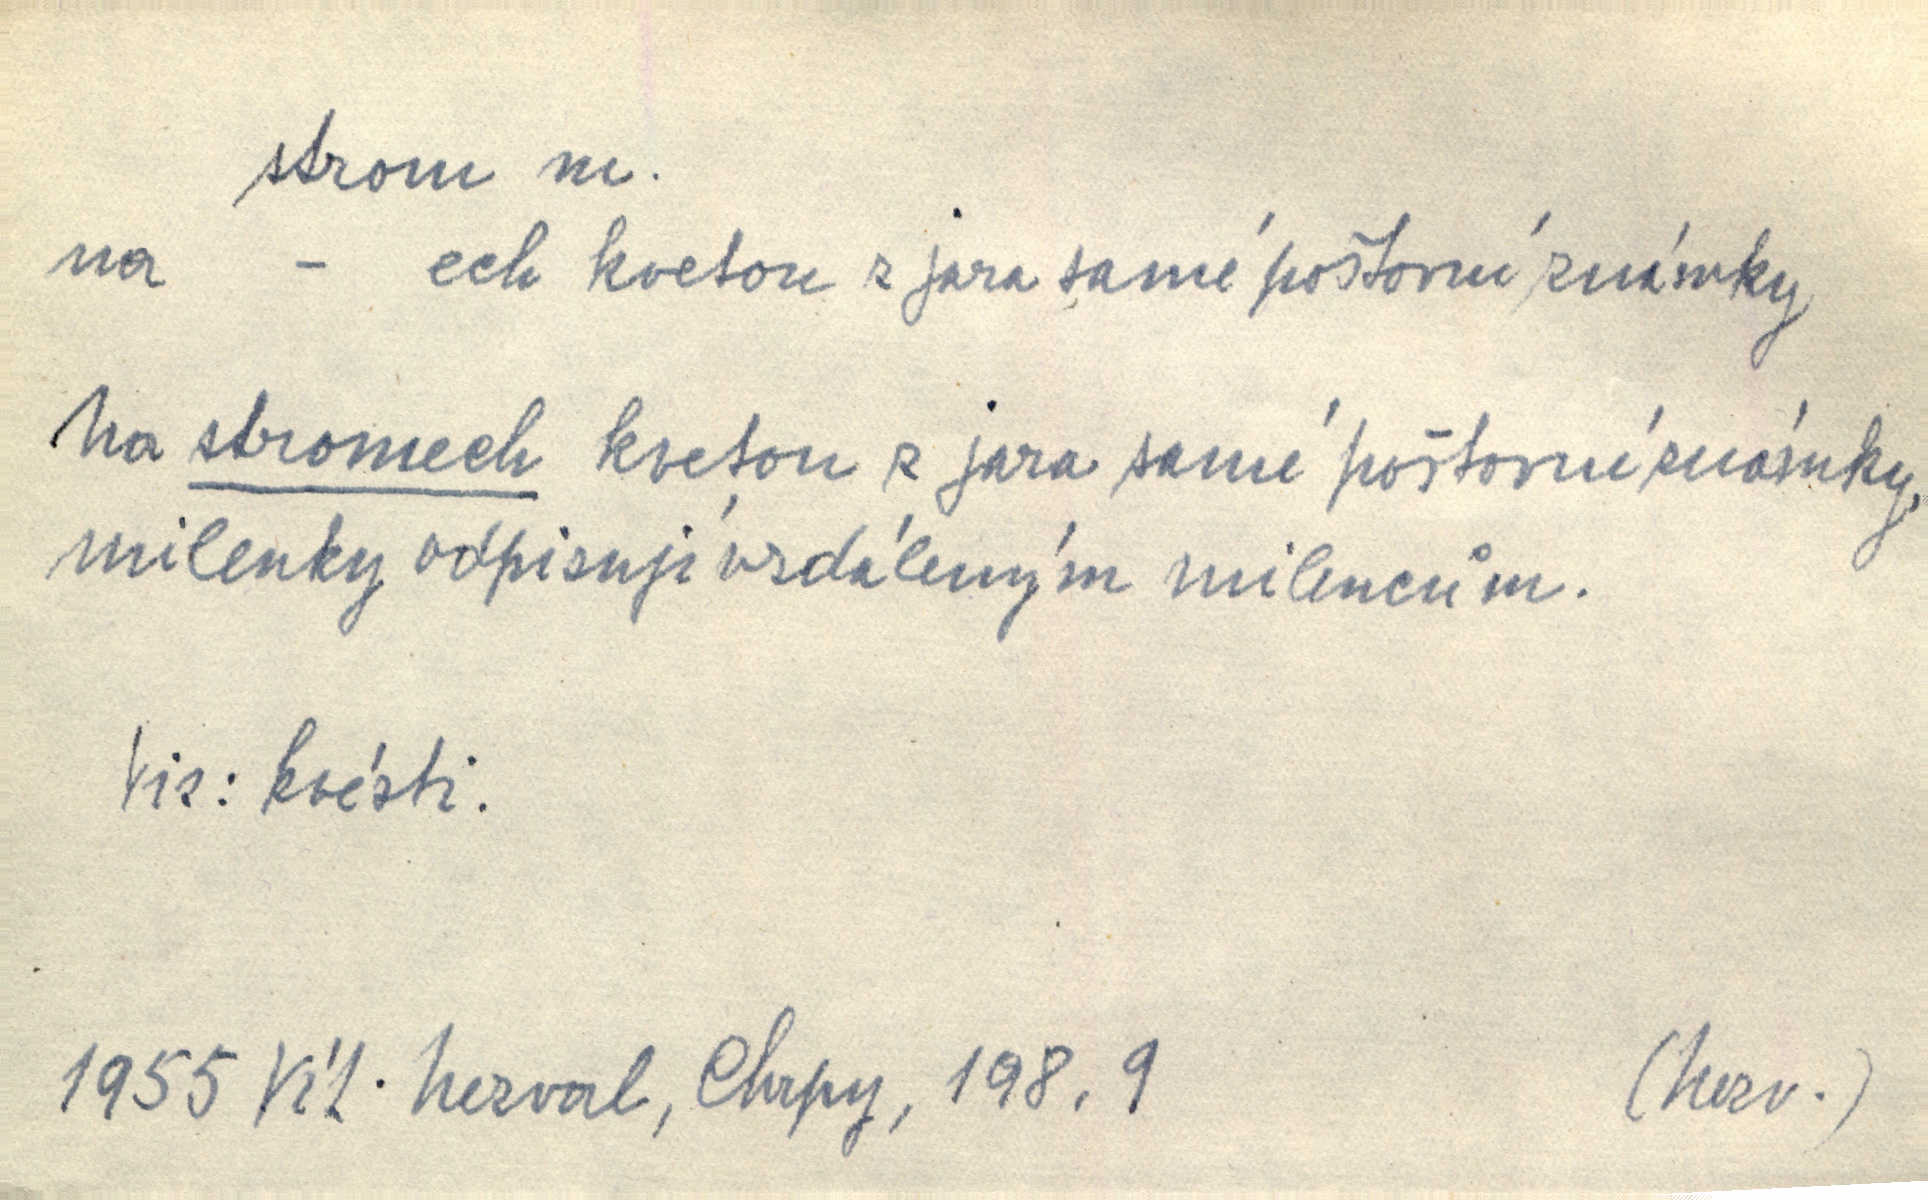 strom m.
na – ech kvetou z jara samé poštovní známky
Na stromech kvetou z jara samé poštovní známky,
milenky odpisují vzdáleným milencům.
Viz: kvésti.
1955 Vít. Nezval, Chrpy, 198, 9 (Nezv.)